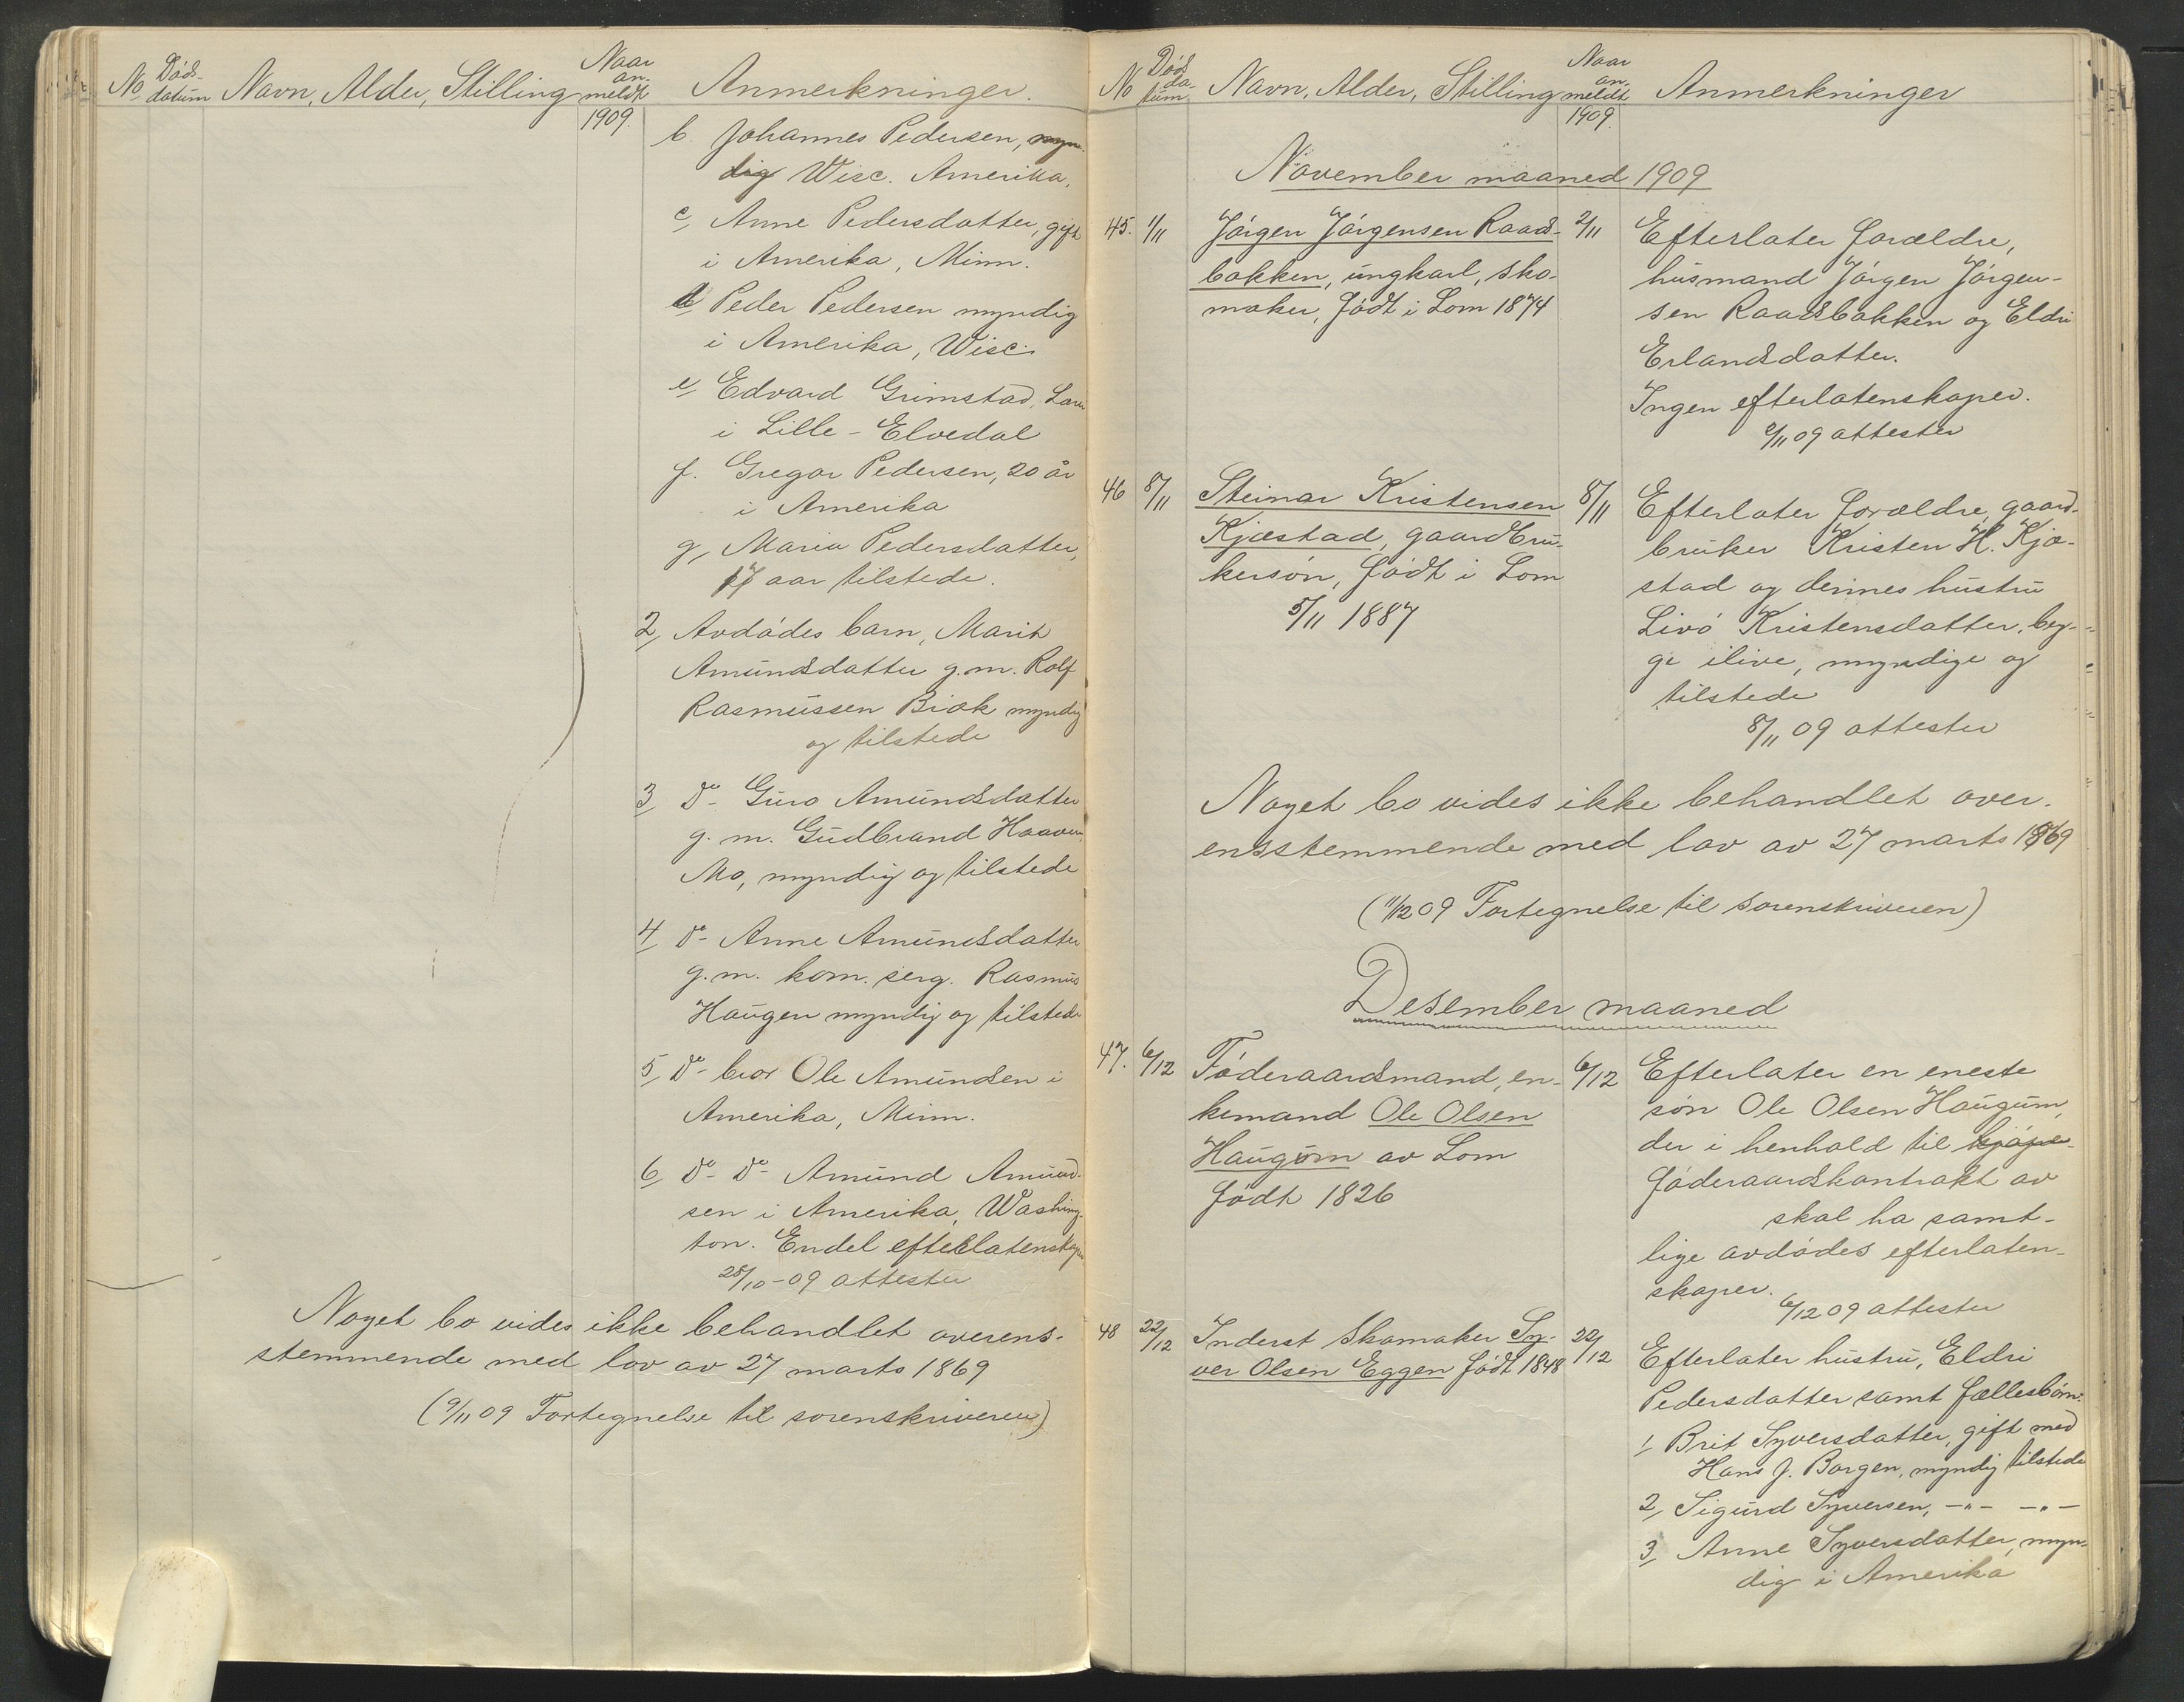 No Døds-datum Navn, Alder, Stilling Naar an-meldt Anmerkninger.
1909.
b. Johannes Pedersen, myn-
dig Wisc. Amerika.
c, Anne Pedersdatter, gift
i Amerika, Minn.
d, Peder Pedersen myndig
i Amerika, Wisc.
e, Edvard Grimstad,
i Lille-Elvedal
f. Gregor Pedersen, 20 år
i Amerika
g, Maria Pedersdatter,
17 aar tilstede.
2, Avdødes barn, Marit
Amundsdatter g.m. Rolf
Rasmussen Biøk myndig
og tilstede
3, Do- Guro Amundsdatter
g. m. Gudbrand Haaven
Mo, myndig og tilstede
4, Do- Anne Amundsdatter
g.m. kom. serg. Rasmus
Haugen myndig og tilstede
5, Do- bror Ole Amundsen i
Amerika, Minn.
6, Do- Do- Amund Amund-
sen i Amerika, Washing-
ton. Endel efterlatenskaper
25/10-09 attester
Noget bo vides ikke behandlet overens-
stemmende med lov av 27 marts 1869
(9/11 09 Fortegnelse til sorenskriveren)
No Døds da-tum Navn, Alder, Stilling Naar an-meldt Anmerkninger
1909.
November maaned 1909
45. 1/11 Jørgen Jørgensen Raads- 2/11 Efterlater forældre,
bakken, ungkarl, sko- husmand Jørgen Jørgen-
maker, født i Lom 1874 sen Raadsbakken og Eldri
Erlandsdatter.
Ingen efterlatenskaper.
2/11 09 attester
46 8/11 Steinar Kristensen 8/11 Efterlater forældre, gaard-
Kjæstad, gaardbru- bruker Kristen H. Kjæ-
kersøn, født i Lom stad og dennes hustru
5/11 1887 Livö Kristensdatter, beg-
ge ilive, myndige og
tilstede
8/11 09 attester
Noget bo vides ikke behandlet over-
ensstemmende med lov av 27 marts 1869
(11/12 09 Fortegnelse til sorenskriveren)
Desember maaned
47. 6/12 Føderaadsmand, en- 6/12 Efterlater en eneste
kemand Ole Olsen søn Ole Olsen Haugum,
Haugum av Lom der i henhold til kjøpe-
født 1826 føderaadskontrakt av
skal ha samt-
lige avdødes efterlaten-
skaper.
6/12 09 attester
48 22/12 Inderst skomaker Sy- 22/12 Efterlater hustru, Eldri
ver Olsen Eggen født 1848 Pedersdatter samt fællesbørn:
1, Brit Syversdatter, gift med
Hans J. Borgen, myndig tilstede
2, Sigurd Syversen, -"- -"-
3, Anne Syversdatter, myn-
dig i Amerika